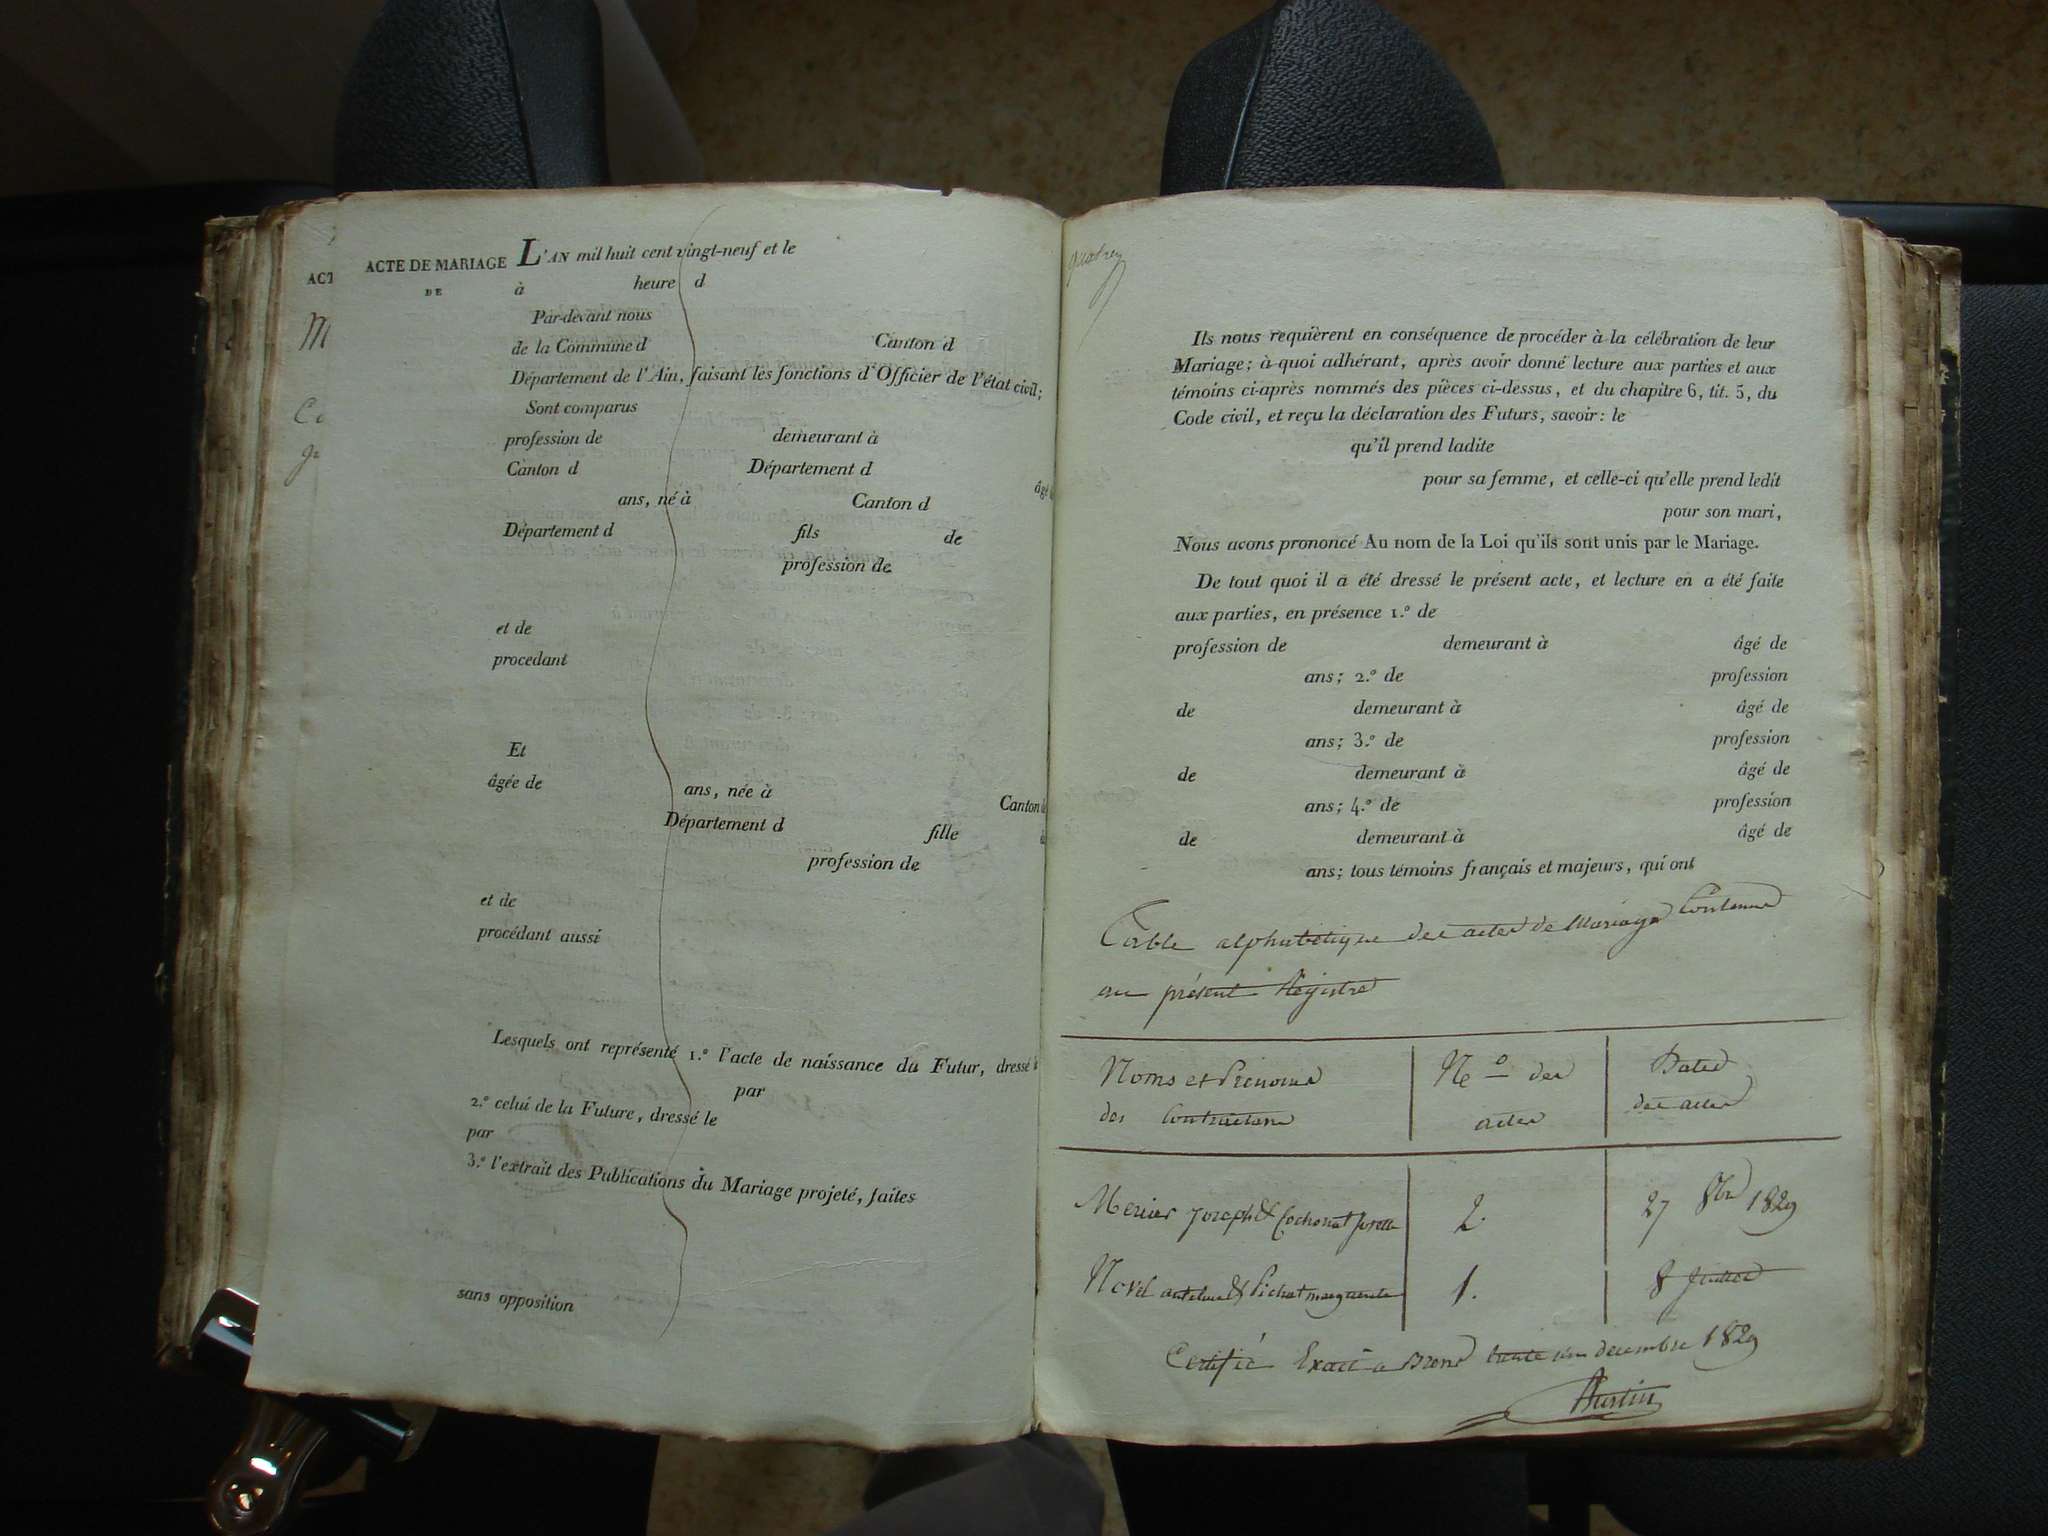 ACT
M
ACTE DE MARIAGE
DE
L'AN mil huit cent vingt-neuf et le
à heure d
Par-devant nous
de la Commune d Canton d
Département de l'Ain, faisant les fonctions d'Officier de l'état civil;
Sont comparus
profession de demeurant à
Canton d Département d
âgé
ans, né à Canton d
Département d fils de
profession de
et de
procedant
Et
âgée de ans, née à Canton d
Département d fille
profession de
et de
procédant aussi
Lesquels ont représenté 1.º l'acte de naissance du Futur, dressé
par
2.º celui de la Future, dressé le
par
3.º l'extrait des Publications du Mariage projeté, faites
sans opposition
Ils nous requièrent en conséquence de procéder à la célébration de leur
Mariage; à quoi adhérant, après avoir donné lecture aux parties et aux
témoins ci-après nommés des pièces ci-dessus, et du chapitre 6, tit. 5, du
Code civil, et reçu la déclaration des Futurs, savoir: le
qu'il prend ladite
pour sa femme, et celle-ci qu'elle prend ledit
pour son mari,
Nous avons prononcé Au nom de la Loi qu'ils sont unis par le Mariage.
De tout quoi il a été dressé le présent acte, et lecture en a été faite
aux parties, en présence 1.º de
profession de demeurant à âgé de
ans; 2.º de profession
de demeurant à âgé de
ans; 3.º de profession
de demeurant à âgé de
ans; 4.º de profession
de demeurant à âgé de
ans; tous témoins français et majeurs, qui ont
Table alphabétique des actes de Mariage Contenus
au présent Registre
Noms et Prenoms
des Contractans
Nº des
actes
Dates
des actes
Mercier joseph & Cochonat 2. 27 8bre 1829
Novel antelme & Pichat marguerite 1. 8 Juillet
Certifié Exact a trente un decembre 1829